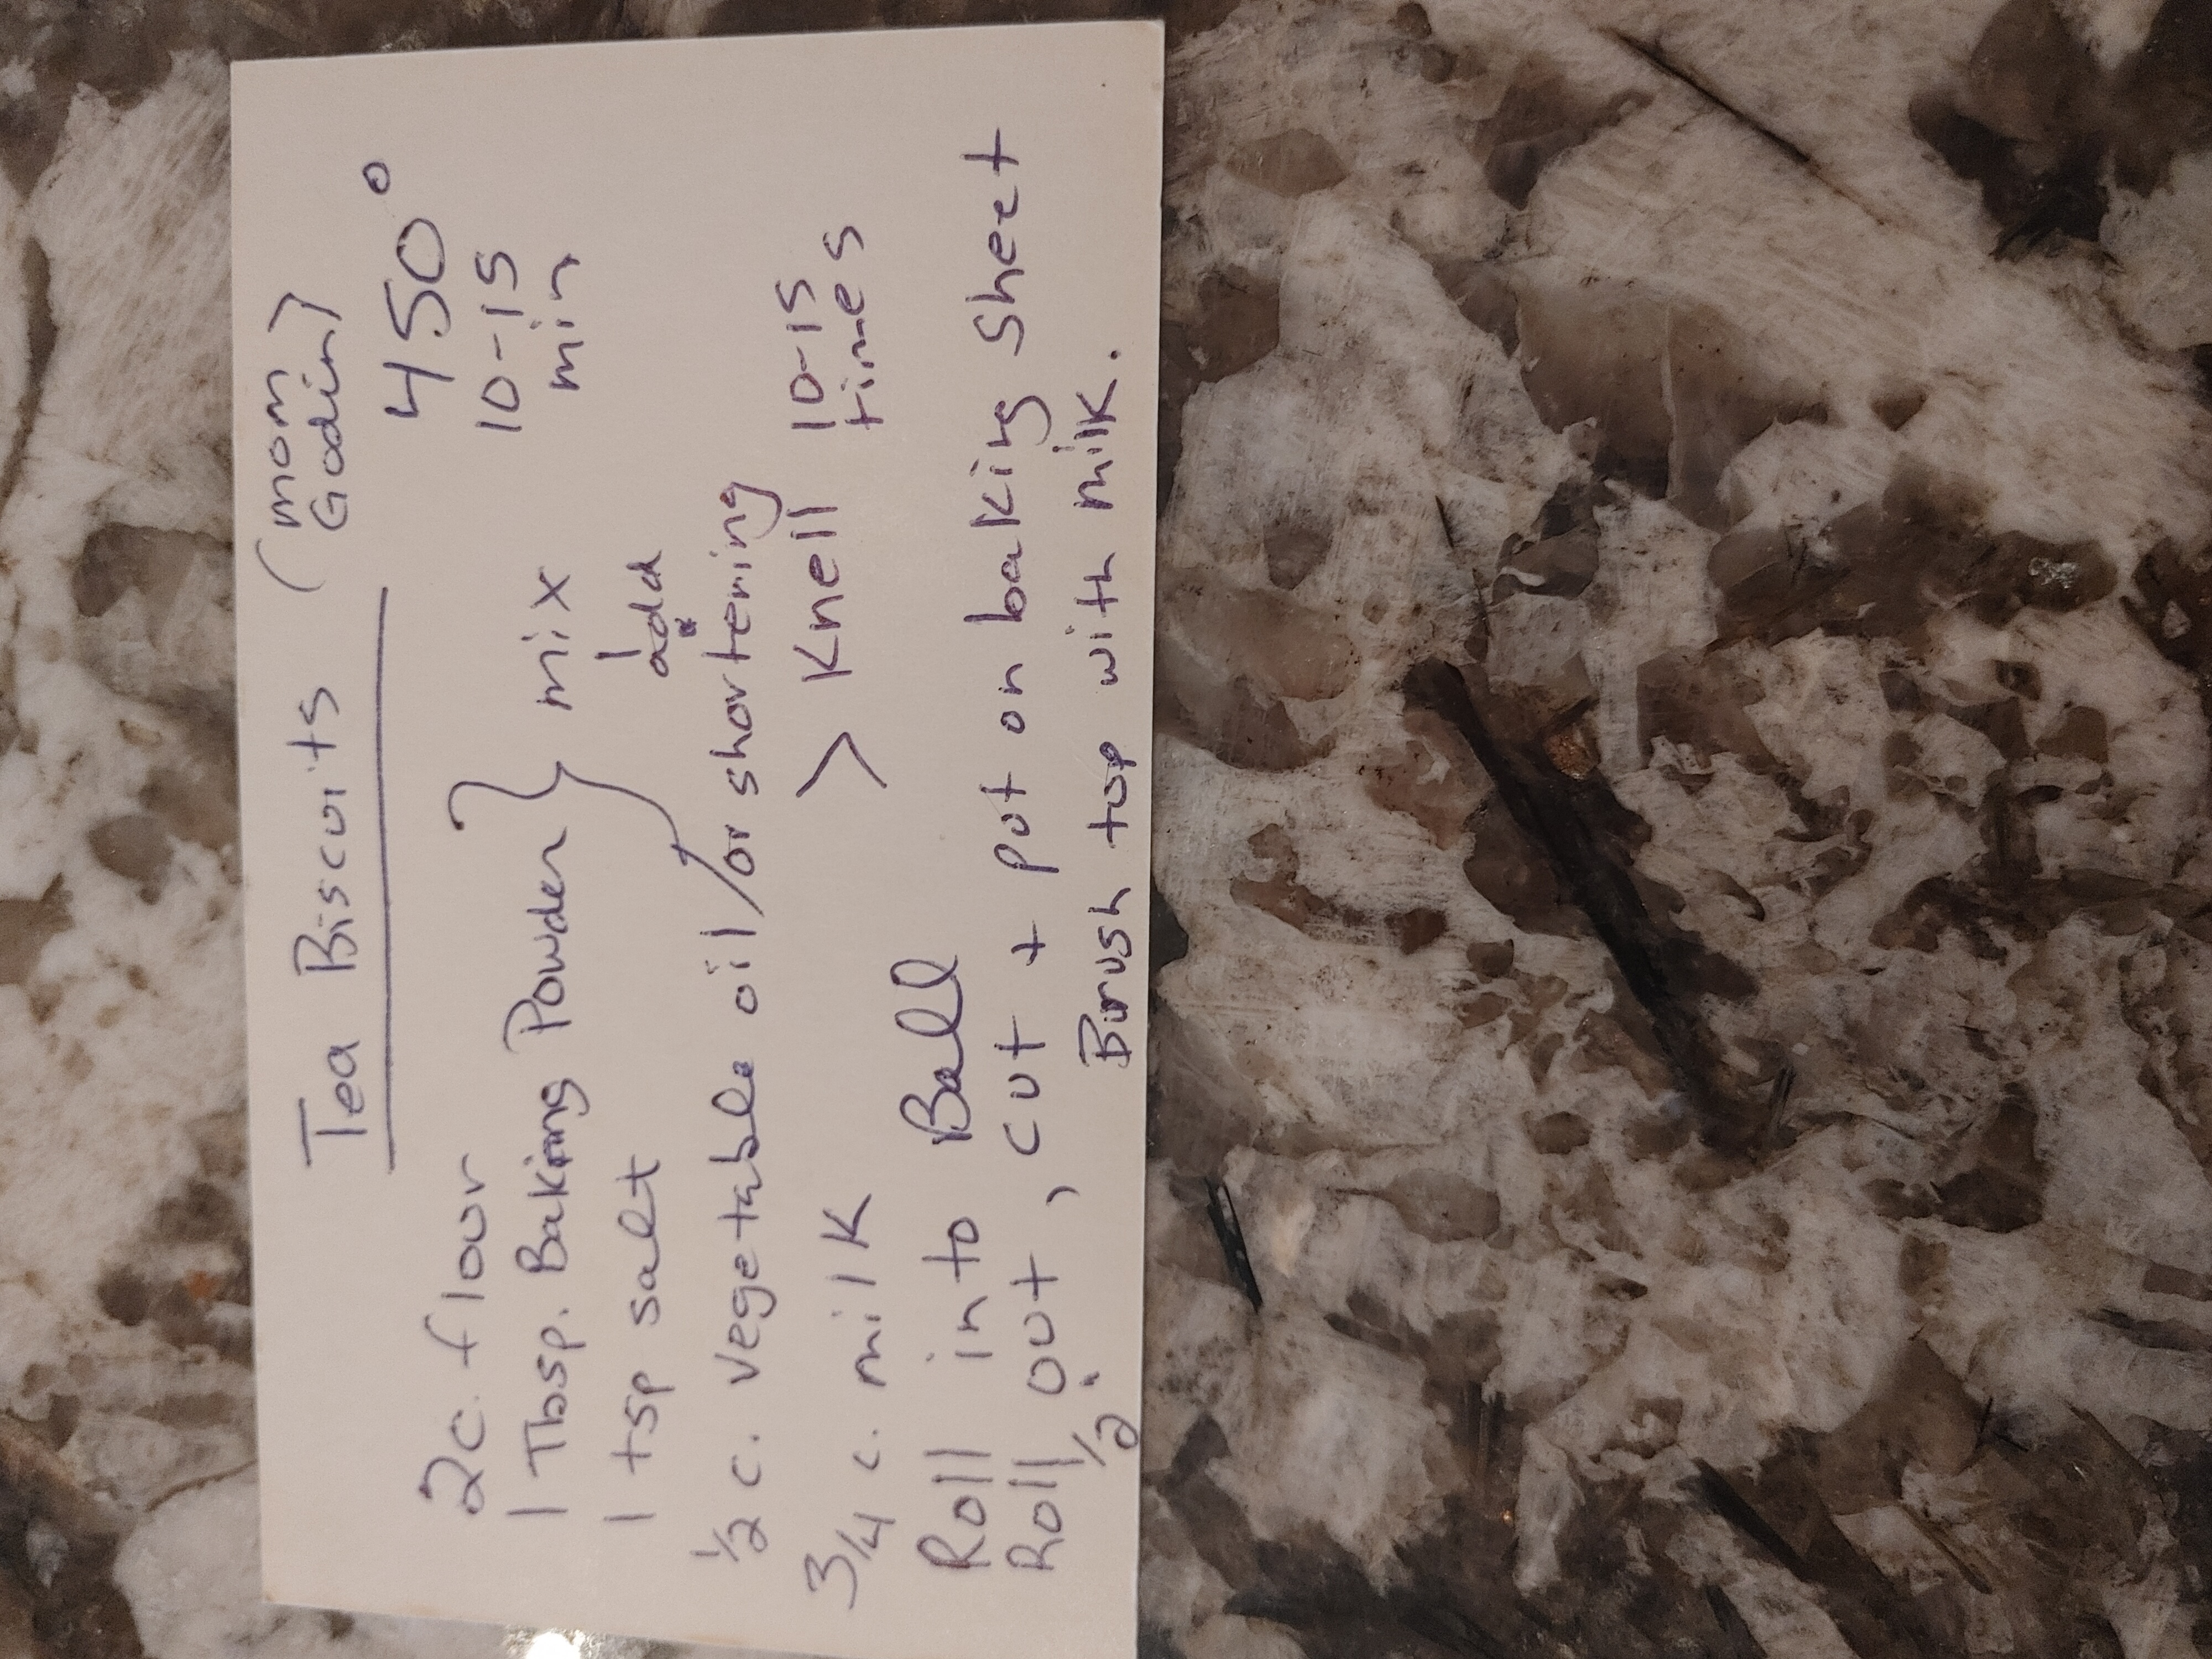 Tea Biscuits (mom
Godin)
450°
10-15
min
2c. flour
1 Tbsp. Baking Powder } mix
1 tsp salt
add
1/2 c. vegetable oil/or shortening
3/4 c. milk > Knell 10-15
times
Roll in to Ball
Roll out, cut + put on baking sheet
1/2" Brush top with milk.